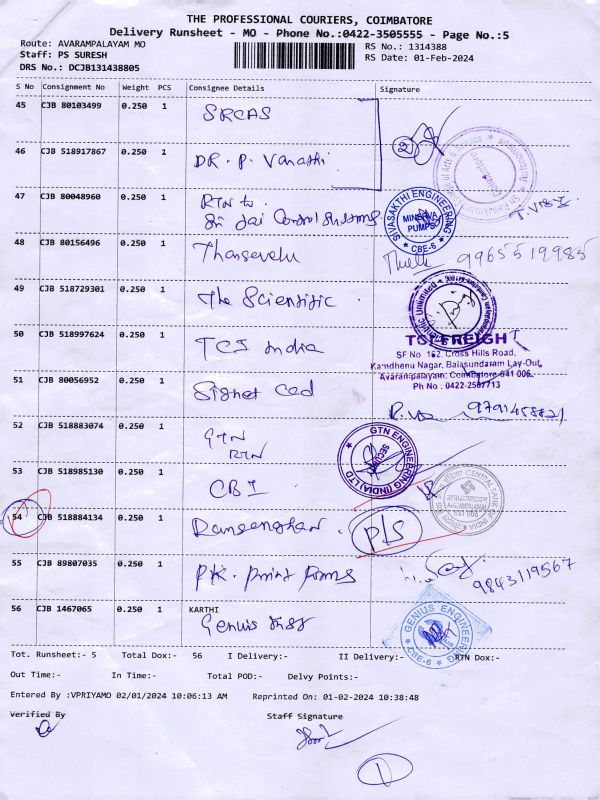 THE PROFESSIONAL COURIERS, COIMBATORE
Delivery Runsheet - MO - Phone No.:0422-3505555 - Page No.:5
Route: AVARAMPALAYAM MO
Staff: PS SURESH
DRS No.: DCJB131438805
RS No.: 1314388
RS Date: 01-Feb-2024
S No Consignment No Weight PCS Consignee Details Signature
45 CJB 80103499 0.250 1 SRCAS
22
46 CJB 518917867 0.250 1 DR. P. Vanathi
47 CJB 80048960 0.250 1 RTN to
Sri Jai Control
SIVASAKTHI ENGINEERING
MINERVA PUMPS
CBE-6
48 CJB 80156496 0.250 1
9965519985
49 CJB 518729301 0.250 1 The Scientific
50 CJB 518997624 0.250 1 TCI India
TCI FREIGHT
SF No 162, Cross Hills Road,
Kamdhenu Nagar, Balasundaram Lay-Out,
Avarampalayam, Coimbatore-641 006.
Ph No : 0422-2567713
51 CJB 80056952 0.250 1
52 CJB 518883074 0.250 1 GTN
RTN
GTN ENGINEERING (INDIA) LTD
SECURITY
53 CJB 518985130 0.250 1 CBI
CENTRAL BANK OF INDIA
54 CJB 518884134 0.250 1
P/S
55 CJB 89807035 0.250 1 P.K. Print Forms
9843119567
56 CJB 1467065 0.250 1 KARTHI
Genius
GENIUS ENGINEERS
CBE-6
Tot. Runsheet:- 5 Total Dox:- 56 I Delivery:- II Delivery:- RTN Dox:-
Out Time:- In Time:- Total POD:- Delvy Points:-
Entered By :VPRIYAMO 02/01/2024 10:06:13 AM Reprinted On: 01-02-2024 10:38:48
Verified By Staff Signature
1